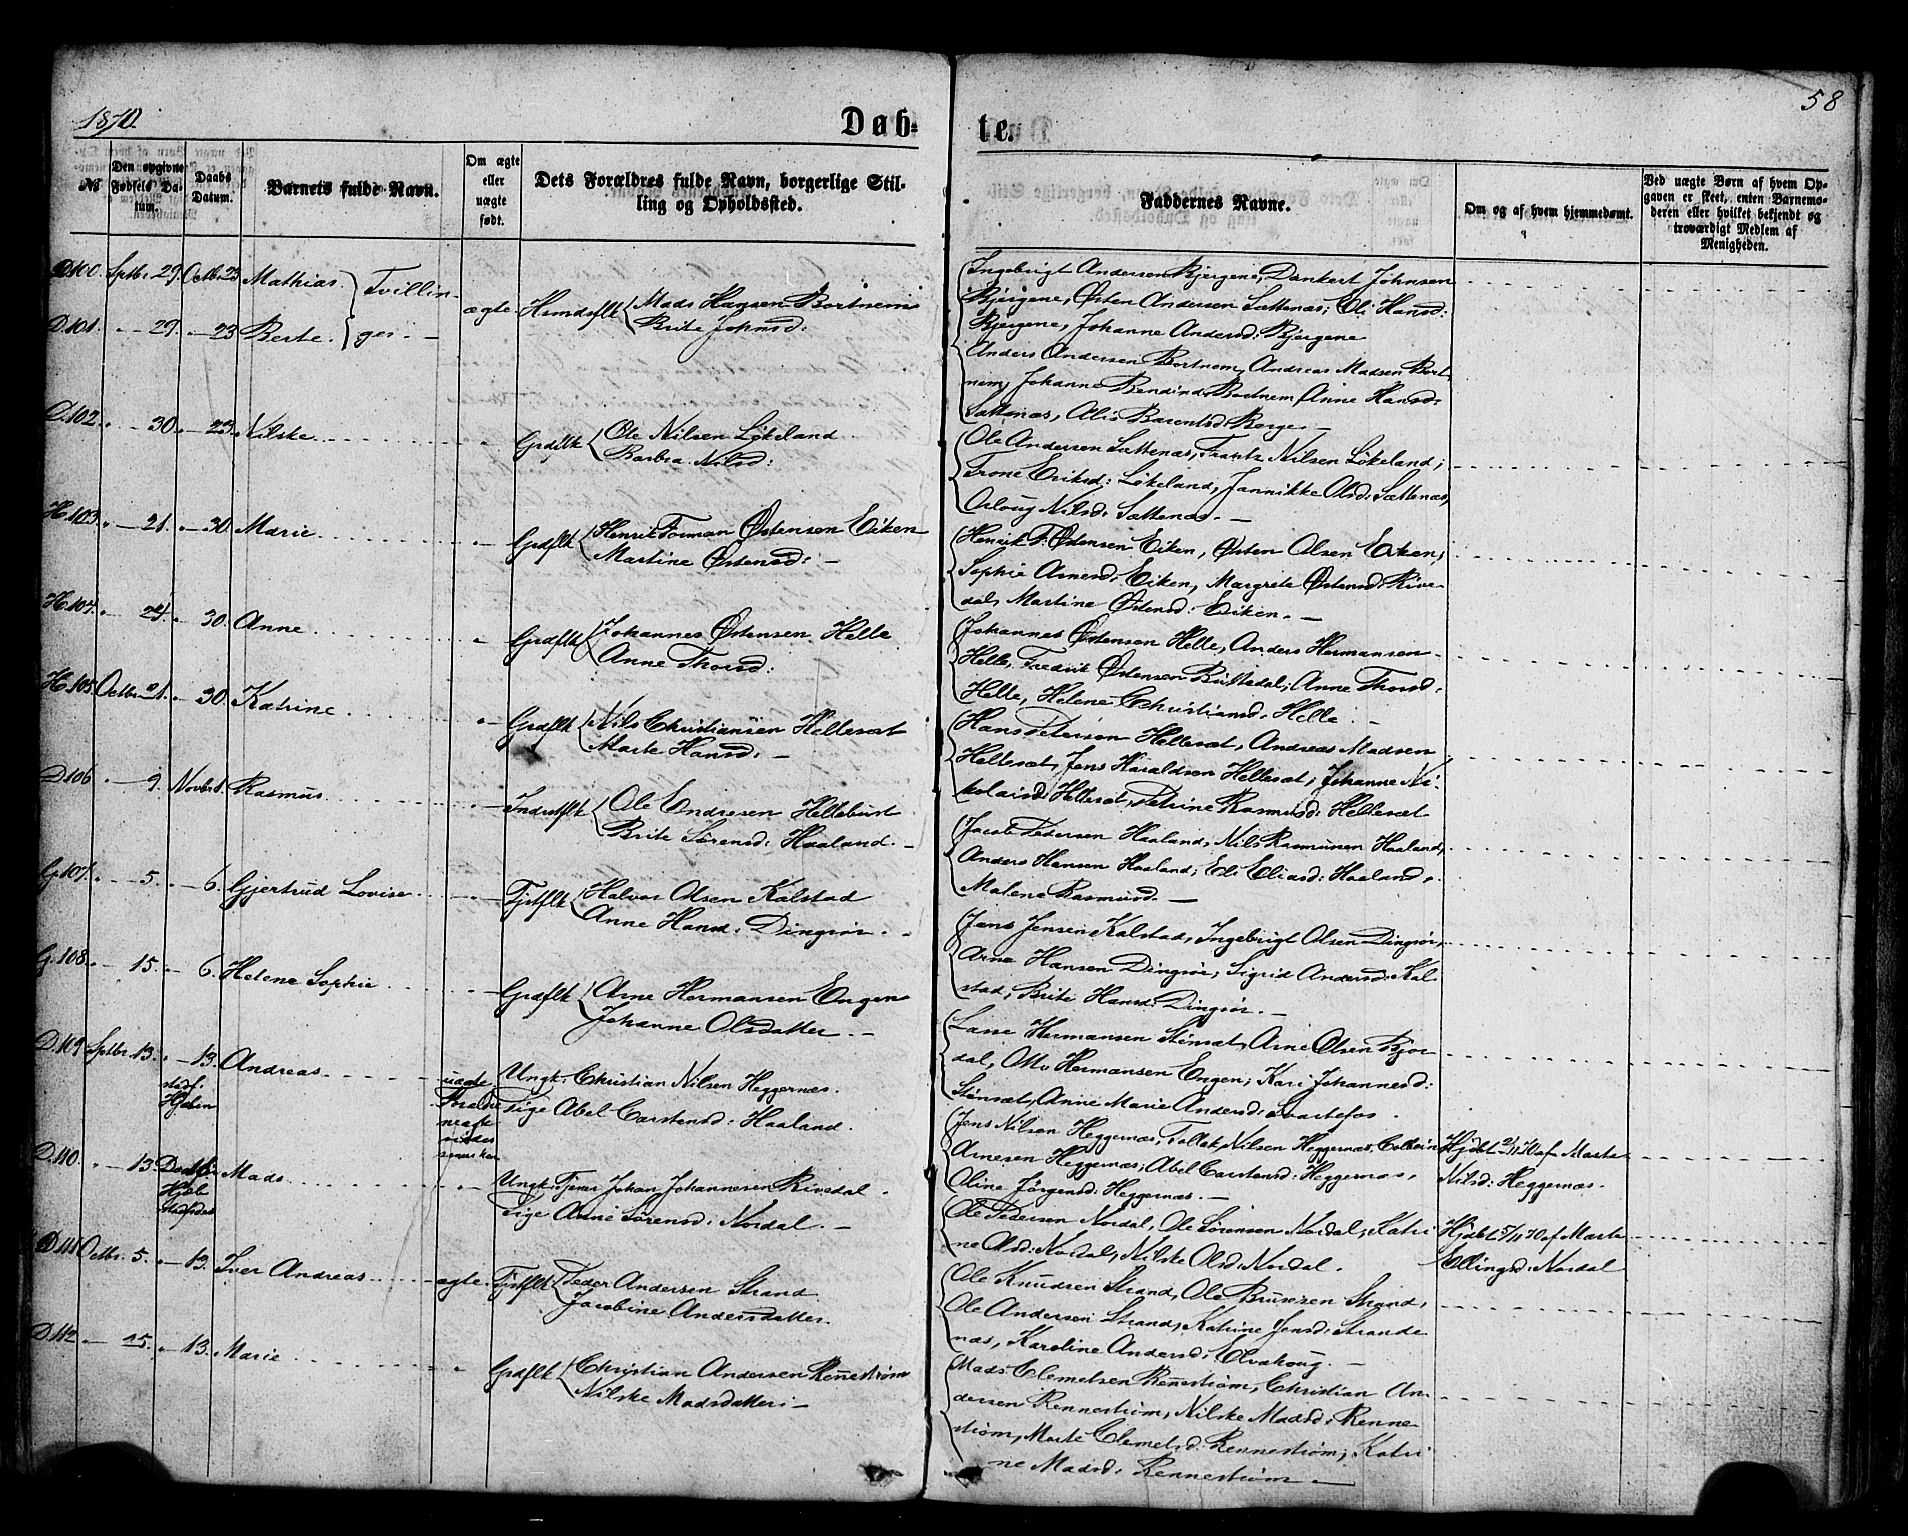 1870.
58
Døb-
te.
№
Den opgivne Fødsels Datum.
Daabs Datum.
Barnets fulde Navn.
Om ægte eller uægte født.
Dets Forældres fulde Navn, borgerlige Stilling og Opholdssted.
Faddernes Navne.
Om og af hvem hjemmedøbt.
Ved uægte Børn af hvem Opgaven er skeet, enten Barnemoderen eller hvilket bekjendt og troværdigt Medlem af Menigheden.
D.100. Sptbr. 29. Octbr. 23 Mathias. } Tvillin-
D.101. " — 29. " — 23 Berte. } ger. —
ægte Hsmdsflk { Mads Hansen Bortnem
Brite Johnsd:
Ingebrigt Andersen Bjergene, Dankert Johnsen
Bjergene, Østen Andersen Sættenæs; Oli Hansd:
Bjergene, Johanne Andersd: Bjergene
Anders Andersen Bortnem, Andreas Madsen Bort-
nem, Johanne Bendixd: Bortnem, Anne Hansd:
Sættenæs, Alis Barentsd: Berge. —
D.102. " — 30. " — 23. Nilske
" Grdflk { Ole Nilsen Løkeland
Barbra Nilsd:
Ole Andersen Sættenæs, Frantz Nilsen Løkeland;
Trone Eriksd: Løkeland, Jannikke Olsd: Sættenæs,
Osloug Nilsd: Sættenæs. —
H.103. " — 21. " — 30. Marie
" Grdflk { Henrik Forman Østensen Eiken
Martine Østensd: —
Henrik F. Østensen Eiken, Østen Olsen Eiken;
Sophie Arnesd: Eiken, Margrete Østensd: Rive-
dal, Martine Østensd: Eiken. —
H.104. " — 24. " — 30. Anne
" Grdflk { Johannes Østensen Helle
Anne Thorsd:
Johannes Østensen Helle, Anders Hermansen
Helle, Fredrik Østensen Bustedal; Anne Thorsd:
Helle, Helene Christiansd: Helle. —
H.105. Octbr. 21. " 30. Katrine
" Grdflk { Nils Christiansen Hellesæt
Marte Hansd: —
Hans Petersen Hellesæt, Andreas Madsen
Hellesæt, Jens Haraldsen Hellesæt; Johanne Ni-
kolaisd: Hellesæt, Petrine Rasmusd: Hellesæt
D.106 " — 9. Novbr. 1. Rasmus
" Indrstflk { Ole Endresen Hellebust
Brite Sørensd: Haaland. —
Jacob Pedersen Haaland, Nils Rasmusen Haaland,
Anders Hansen Haaland; Eli Eliasd: Haaland,
Malene Rasmusd. —
G.107. " — 5. " — 6. Gjertrud Lovise
" Tjstflk { Halvor Olsen Kalstad
Anne Hansd: Dingiør. —
Jens Jensen Kalstad, Ingebrigt Olsen Dingiør,
Arne Hansen Dingiør; Sigrid Andersd: Kal-
stad, Brite Hansd: Dingiør. —
G.108. " — 15. " — 6. Helene Sophie
" Grdflk { Arne Hermansen Engen
Johanne Olsdatter. —
Lasse Hermansen Stensæt, Arne Olsen Bjor-
dal, Otto Hermansen Engen; Kari Johannesd:
Stensæt, Anne Marie Andersd: Svartefos.
D.109. Sptbr. 13. " — 13. Andreas
stadf. Hjdbn
uægte
Ungk. Christian Nilsen Heggernæs.
Pige Abel Carstensd: Haaland.
Jens Nilsen Heggernæs, Tollek Nilsen Heggernæs, Colbein
Arnesen Heggernæs; Abel Carstensd: Heggernæs,
Oline Jørgensd: Heggernæs. —
Hjdbt 2/11 70 af Marta
Nilsd: Heggernæs.
D.110. " — 13. Mads
" Ungk. Tjener Johan Johannesen Rivedal
Pige Anne Sørensd: Nordal. —
Ole Pedersen Nordal, Ole Sørensen Nordal; Katri-
ne Olsd: Nordal, Nilske Olsd: Nordal.
Hjdbt 5/11 70 af Marta
Ellingsd: Nordal
D.111 Octbr. 5. " — 13. Iver Andreas
ægte. Tjstflk { Peder Andersen Strand
Jacobine Andersdatter
Ole Knudsen Strand, Ole Brusesen Strand,
Ole Andersen Strand, Katrine Jensd: Strande-
næs, Karoline Andersd: Elvehoug. —
D.112 " — 25. " — 13. Marie
" Grdflk { Christian Andersen Rennestrøm
Nilske Madsdatter: —
Mads Clemetsen Rennestrøm, Christian An-
dersen Rennestrøm, Nilske Madsd: Renne-
strøm, Marte Clemetsd: Rennestrøm, Katri-
ne Madsd: Rennestrøm —